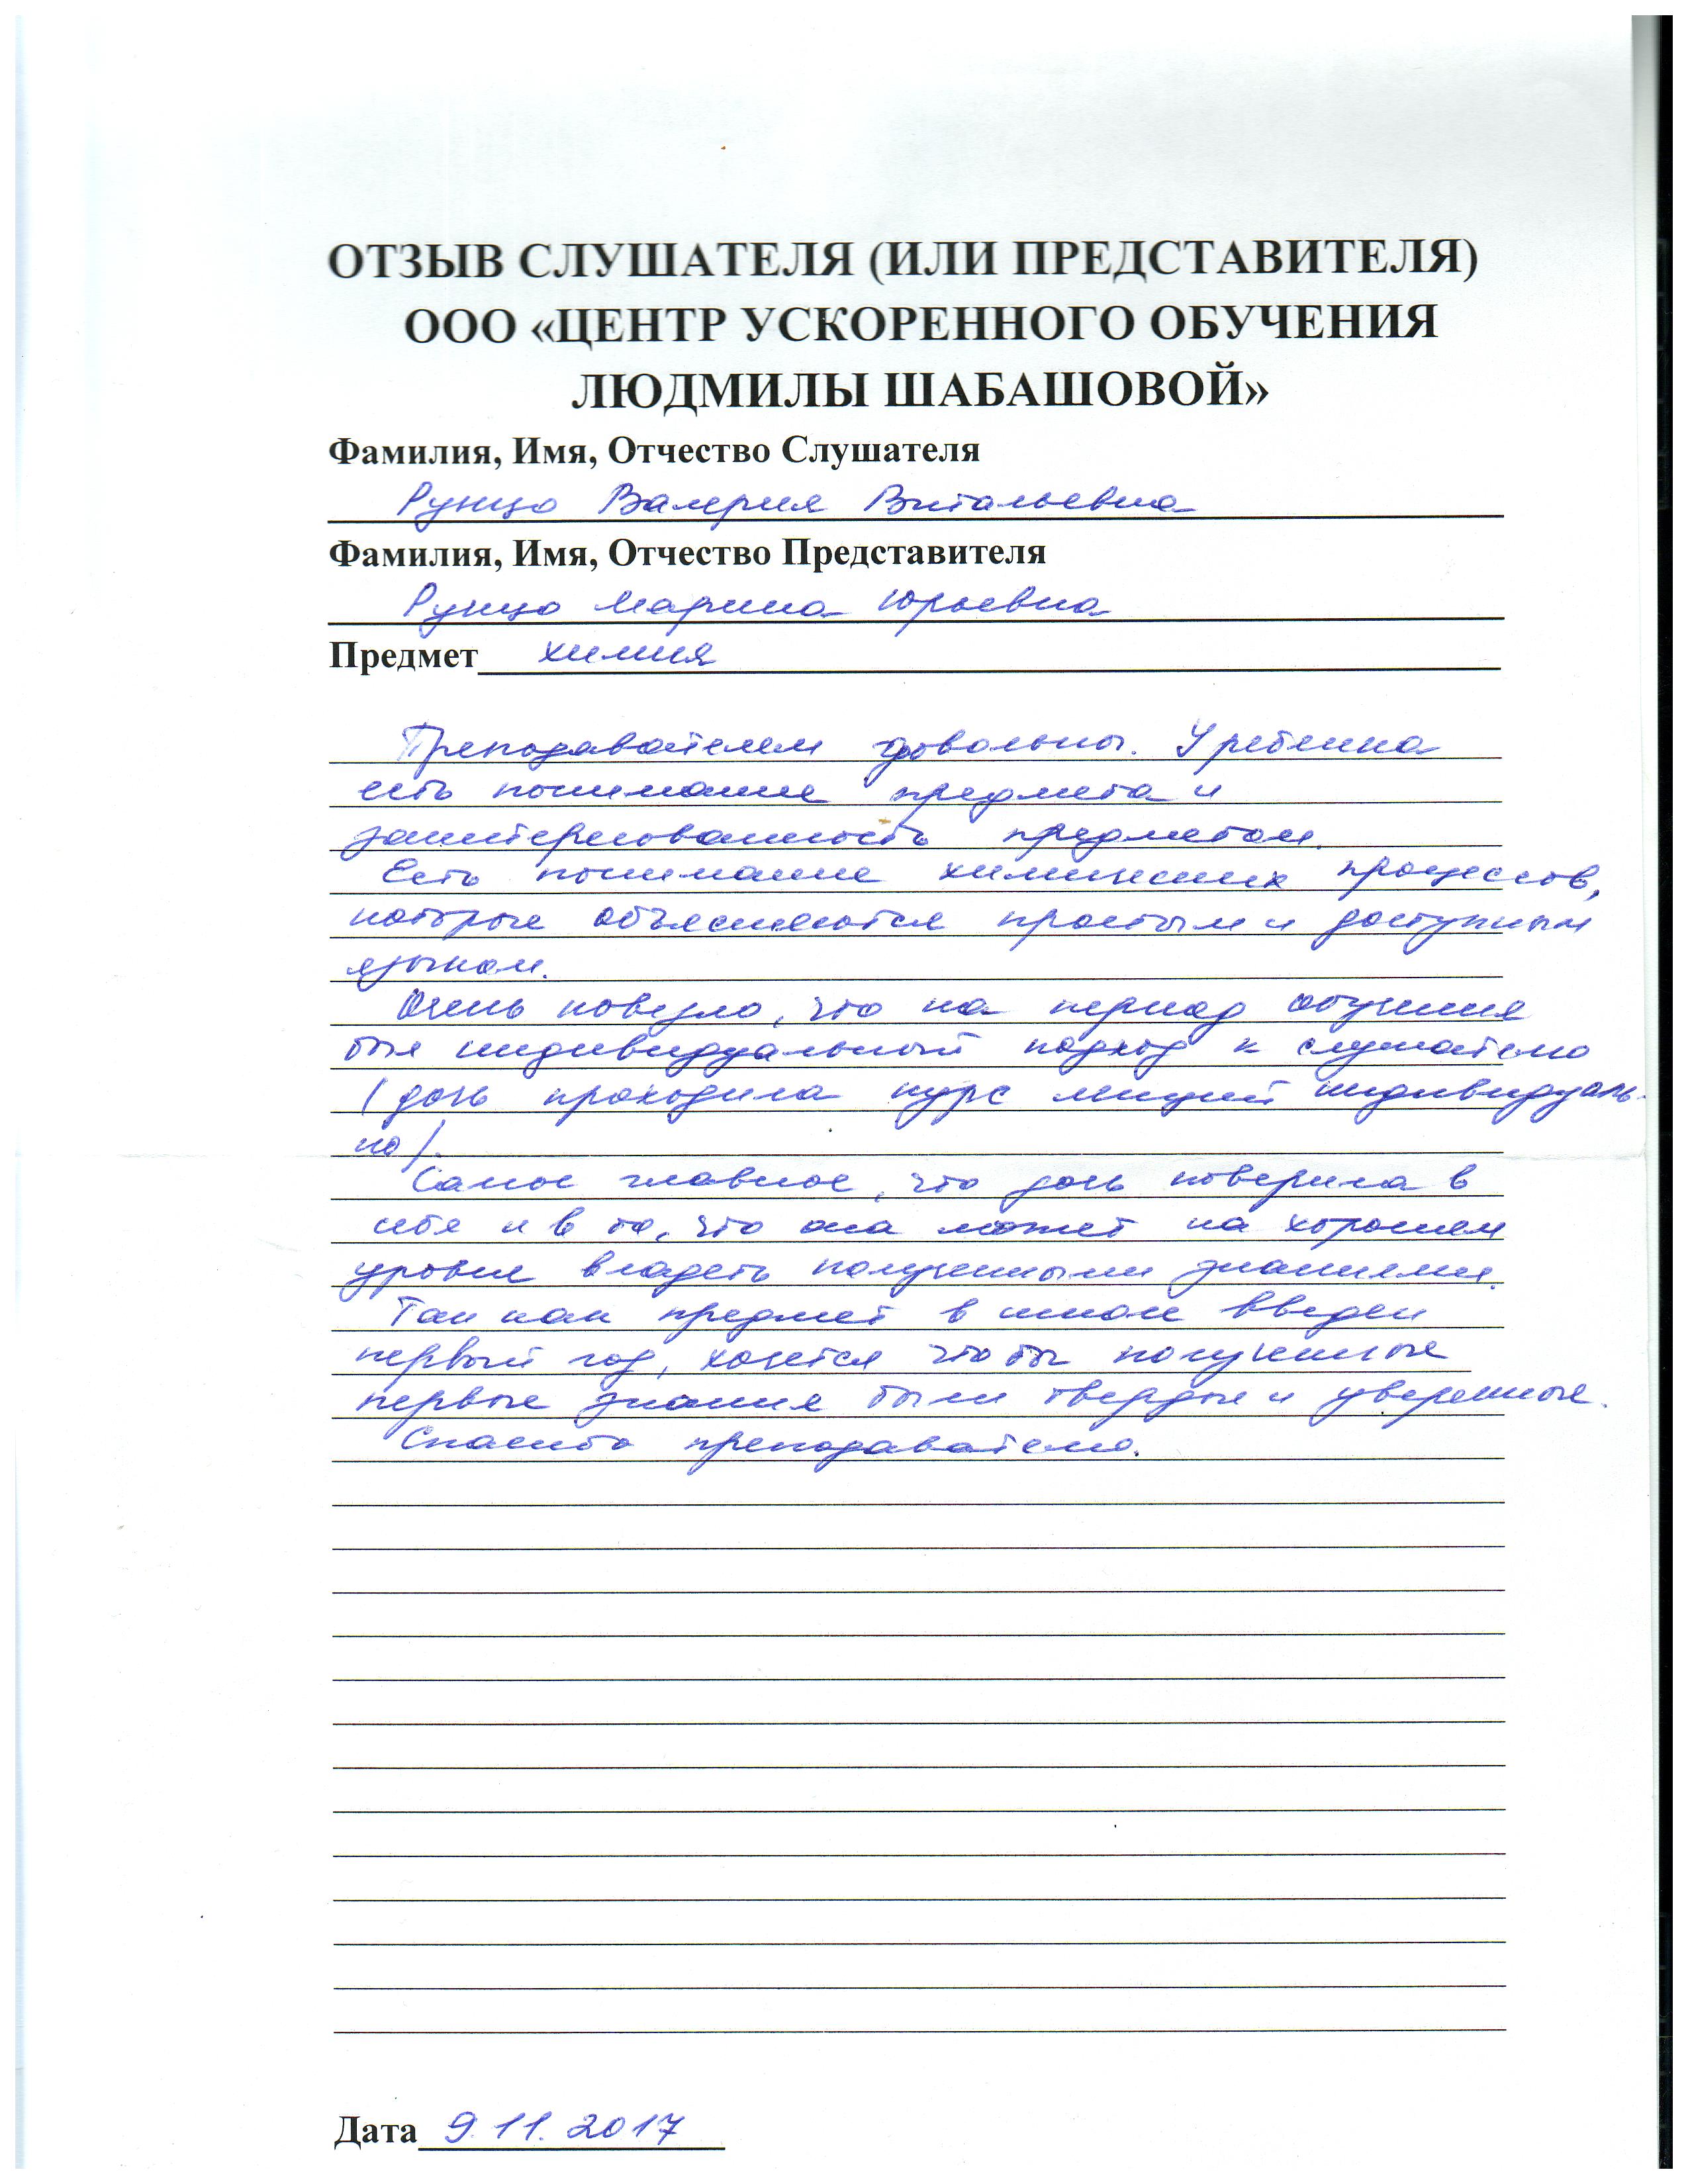 ОТЗЫВ СЛУШАТЕЛЯ (ИЛИ ПРЕДСТАВИТЕЛЯ)
ООО «ЦЕНТР УСКОРЕННОГО ОБУЧЕНИЯ
ЛЮДМИЛЫ ШАБАШОВОЙ»
Фамилия, Имя, Отчество Слушателя
Рунцо Валерия Витальевна
Фамилия, Имя, Отчество Представителя
Рунцо Марина Юрьевна
Предмет химия
Преподавателем довольны. У ребенка
есть понимание предмета и
заинтересованность предметом.
Есть понимание химических процессов,
которые объясняются простым и доступным
языком.
Очень повезло, что на период обучения
был индивидуальный подход к слушателю
(дочь проходила курс лекций индивидуаль-
но).
Самое главное, что дочь поверила в
себя и в то, что она может на хорошем
уровне владеть полученными знаниями.
Так как предмет в школе введен
первый год, хочется что бы полученные
первые знания были твердые и уверенные.
Спасибо преподавателю.
Дата 9.11.2017